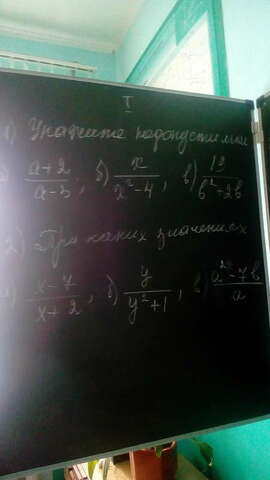 I
1) Укажите недопустимые
а) a+2/a-5; б) x/x²-4, в) 13/b²+2b
2) При каких значениях
а) x-7/x+2, б) y/y²+1, в) a²-7b/a